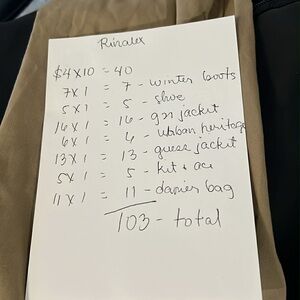 Rinalex
$4 x 10 = 40
7 x 1 = 7 - winter boots
5 x 1 = 5 - shoe
16 x 1 = 16 - jacket
6 x 1 = 6 - urban heritage
13 x 1 = 13 - guess jacket
5 x 1 = 5 - kit & ace
11 x 1 = 11 - danier bag
103 - total